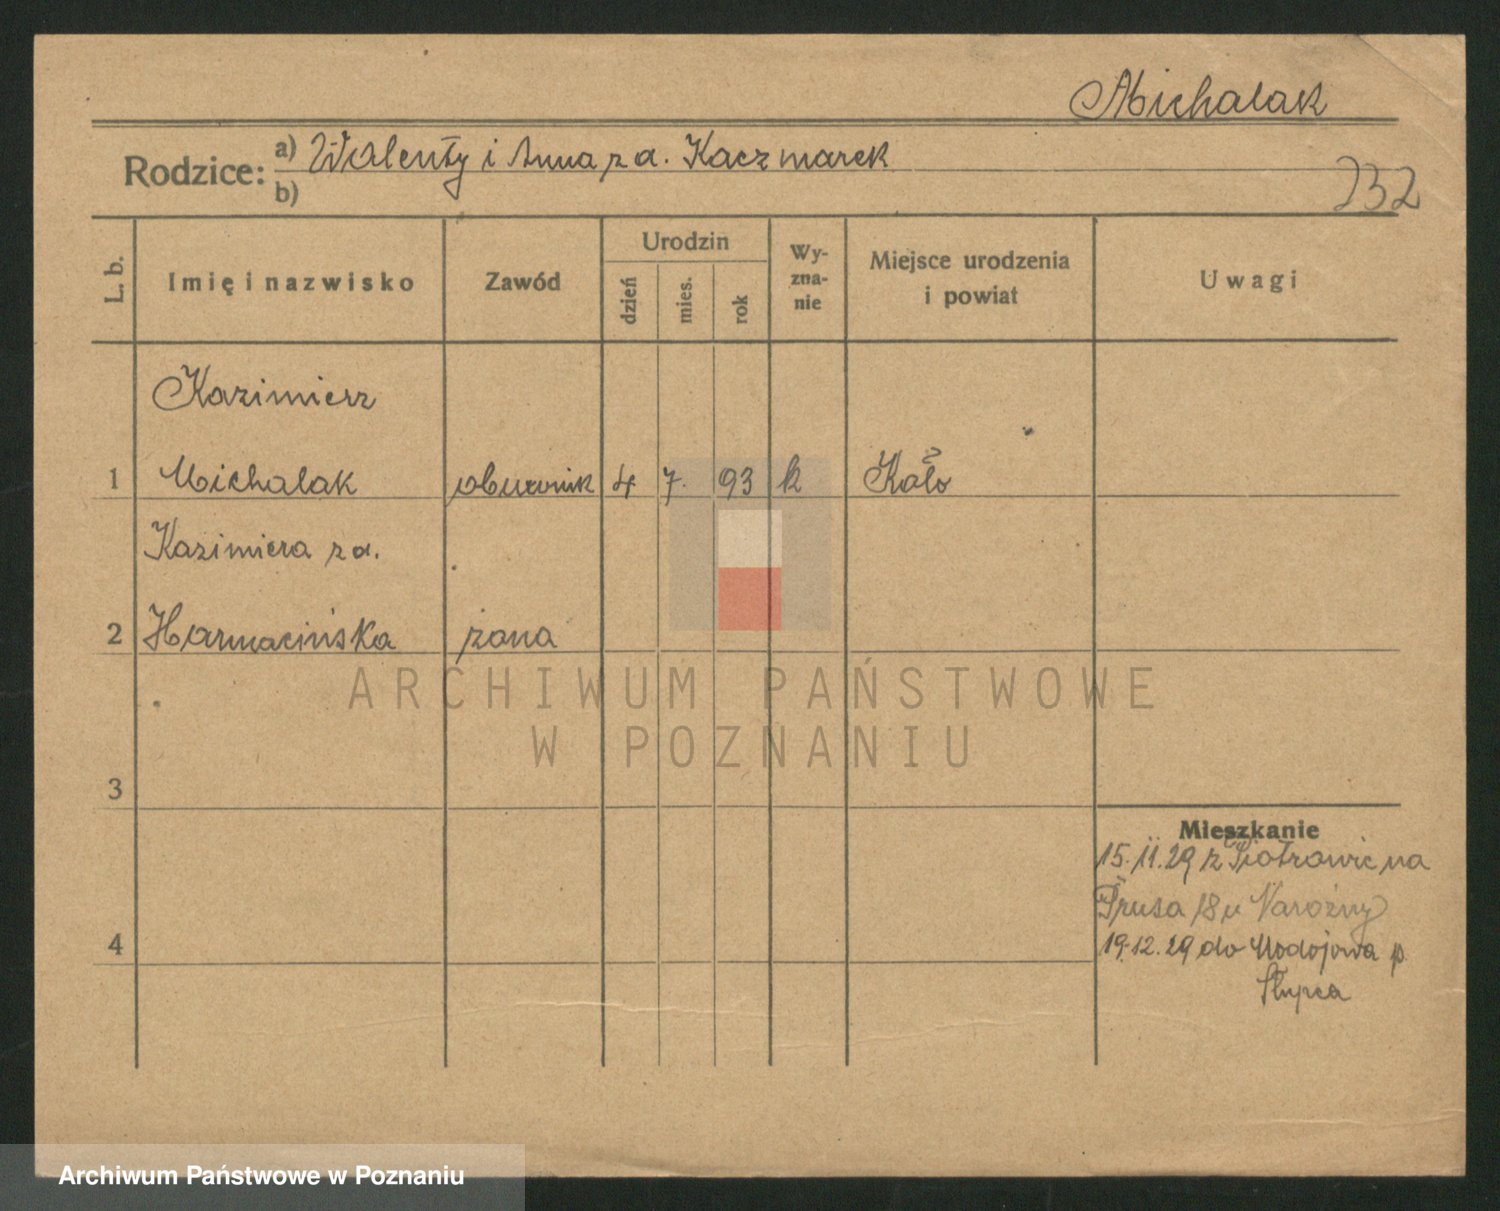 Michalak
Rodzice: a) Walenty i Anna z d. Kaczmarek
b)
232
L. b.
Imię i nazwisko
Zawód
Urodzin
dzień
mies.
rok
Wy-
zna-
nie
Miejsce urodzenia
i powiat
Uwagi
Kazimierz
1 Michalak obuwnik 4 7. 93 k Koło
Kazimiera z d.
2 żona
3
4
Mieszkanie
15.11.29 z Piotrowic na
Prusa 18 u
19.12.29 do p.
Słupca
ARCHIWUM PAŃSTWOWE
W POZNANIU
Archiwum Państwowe w Poznaniu